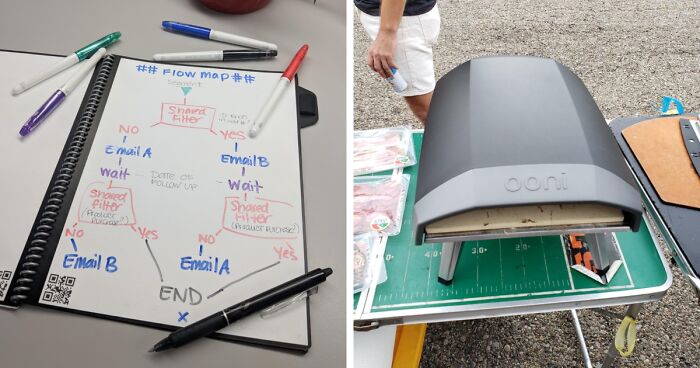 ## Flow map ##
Segment
Shared
Filter
NO
Yes
Email A
Email B
Wait
Date of
Follow up
Wait
Shared
Filter
(Product
Purchase?)
Shared
Filter
(Product Purchase?)
No
Yes
NO
Yes
Email B
Email A
END
x
ooni